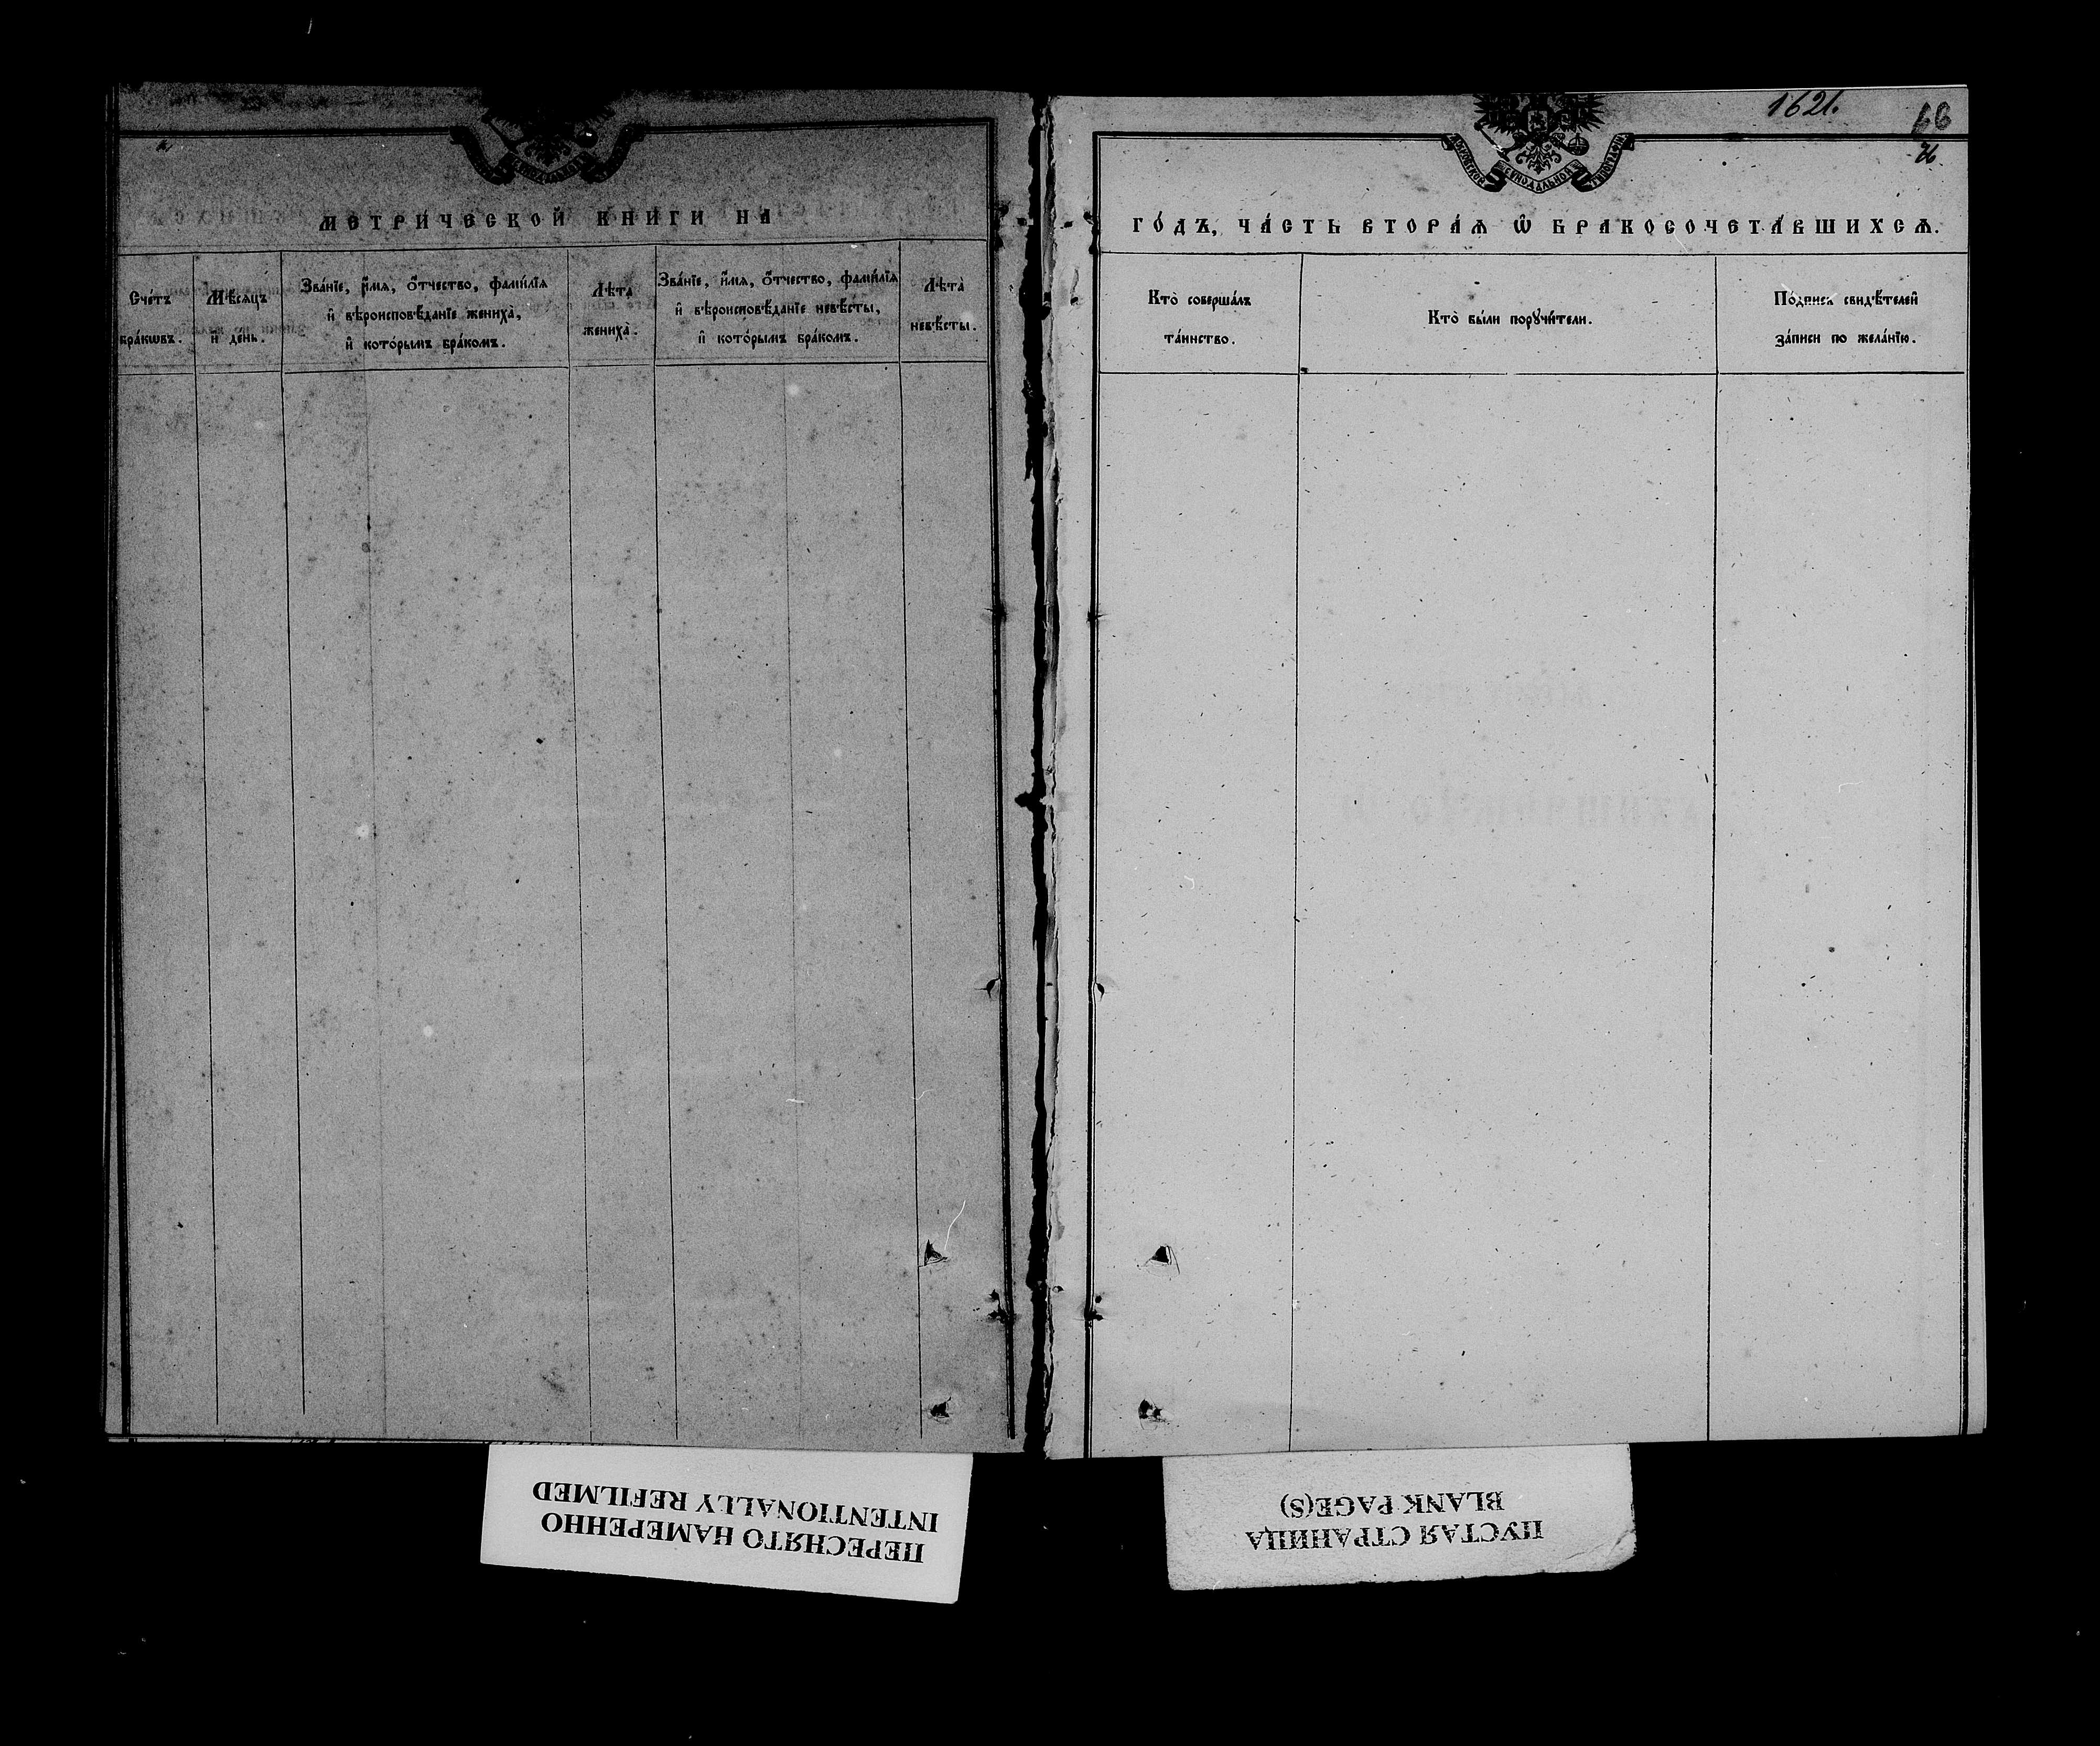 МЕТРИ́ЧЕСКОЙ КНИ́ГИ НА
Сче́тъ
бра́кѡвъ.
Мѣ́сяцъ
и҆ де́нь.
Зва́нїе, и҆́мя, ѻ҆́тчество, фами́лїя
и҆ вѣроисповѣ́данїе жениха̀,
и҆ кото́рымъ бра́комъ.
Лѣта̀
жениха̀.
Зва́нїе, и҆́мя, ѻ҆́тчество, фами́лїя
и҆ вѣроисповѣ́данїе невѣ́сты,
и҆ кото́рымъ бра́комъ.
Лѣта̀
невѣ́сты.
1621.
66
СѴНОДАЛЬНОЙ
ГО́ДЪ, ЧА́СТЬ ВТОРА́Ѧ Ѽ БРАКОСОЧЕТА́ВШИХСѦ.
Кто̀ соверша́лъ
та́инство.
Кто̀ бы́ли порꙋчи́тели.
По́дпись свидѣ́телей
за́писи по жела́нїю.
ПЕРЕСНЯТО НАМЕРЕННО
INTENTIONALLY REFILMED
ПУСТАЯ СТРАНИЦА
BLANK PAGE(S)